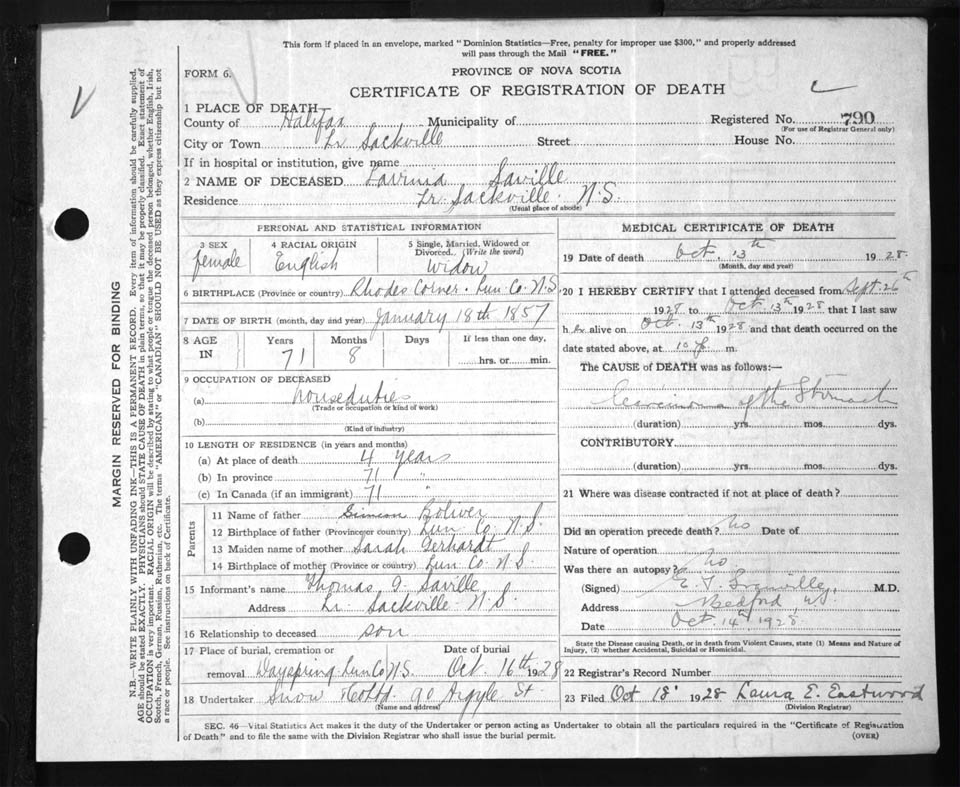 This form if placed in an envelope, marked "Dominion Statistics—Free, penalty for improper use $300," and properly addressed
will pass through the Mail "FREE."
FORM 6.
PROVINCE OF NOVA SCOTIA
CERTIFICATE OF REGISTRATION OF DEATH
1 PLACE OF DEATH
County of Halifax Municipality of Registered No. 790
(For use of Registrar General only)
City or Town Lr Sackville Street House No.
If in hospital or institution, give name
2 NAME OF DECEASED Lavinia Saville
Residence Lr. Sackville. N.S.
(Usual place of abode)
PERSONAL AND STATISTICAL INFORMATION
3 SEX
female
4 RACIAL ORIGIN
English
5 Single, Married, Widowed or
Divorced. (Write the word)
Widow
6 BIRTHPLACE (Province or country) Rhodes Corner. Lun. Co. N.S.
7 DATE OF BIRTH (month, day and year) January 18th 1857
8 AGE IN
Years Months Days If less than one day,
71 8 hrs. or min.
9 OCCUPATION OF DECEASED
(a) houseduties
(Trade or occupation or kind of work)
(b)
(Kind of industry)
10 LENGTH OF RESIDENCE (in years and months)
(a) At place of death 4 years
(b) In province 71 "
(c) In Canada (if an immigrant) 71 "
Parents
11 Name of father Simeon Boliver
12 Birthplace of father (Province or country) Lun Co. N.S.
13 Maiden name of mother Sarah Gerhardt
14 Birthplace of mother (Province or country) Lun Co N.S.
15 Informant's name Thomas G. Saville
Address Lr. Sackville N.S.
16 Relationship to deceased son
17 Place of burial, cremation or Date of burial
removal Dayspring Lun Co N.S. Oct. 16th 1928
18 Undertaker Snow & Co Ltd 90 Argyle St.
(Name and address)
MEDICAL CERTIFICATE OF DEATH
19 Date of death Oct. 13th 1928.
(Month, day and year)
20 I HEREBY CERTIFY that I attended deceased from Sept. 26th
1928 to Oct. 13th 1928 that I last saw
h er alive on Oct. 13th 1928 and that death occurred on the
date stated above, at 10 p. m.
The CAUSE of DEATH was as follows:—
Carcinoma of the Stomach
(duration) yrs. mos. dys.
CONTRIBUTORY
(duration) yrs. mos. dys.
21 Where was disease contracted if not at place of death?
Did an operation precede death? No Date of
Nature of operation
Was there an autopsy? No
(Signed) E. T. Granville, M.D.
Address Bedford, N.S.
Date Oct. 14th 1928
State the Disease causing Death, or in death from Violent Causes, state (1) Means and Nature of
Injury, (2) whether Accidental, Suicidal or Homicidal.
22 Registrar's Record Number
23 Filed Oct 18' 1928 Laura E. Eastwood
(Division Registrar)
SEC. 46—Vital Statistics Act makes it the duty of the Undertaker or person acting as Undertaker to obtain all the particulars required in the "Certificate of Registration
of Death" and to file the same with the Division Registrar who shall issue the burial permit. (OVER)
MARGIN RESERVED FOR BINDING
N.B.—WRITE PLAINLY, WITH UNFADING INK—THIS IS A PERMANENT RECORD. Every item of information should be carefully supplied.
AGE should be stated EXACTLY. PHYSICIANS should STATE CAUSE OF DEATH in plain terms, so that it may be properly classified. Exact statement of
OCCUPATION is very important. RACIAL ORIGIN will be described by stating to what people or tongue the deceased person belonged, whether English, Irish,
Scotch, French, German, Russian, Ruthenian, etc. The terms "AMERICAN" or "CANADIAN" SHOULD NOT BE USED as they express citizenship but not
a race or people. See instructions on back of Certificate.